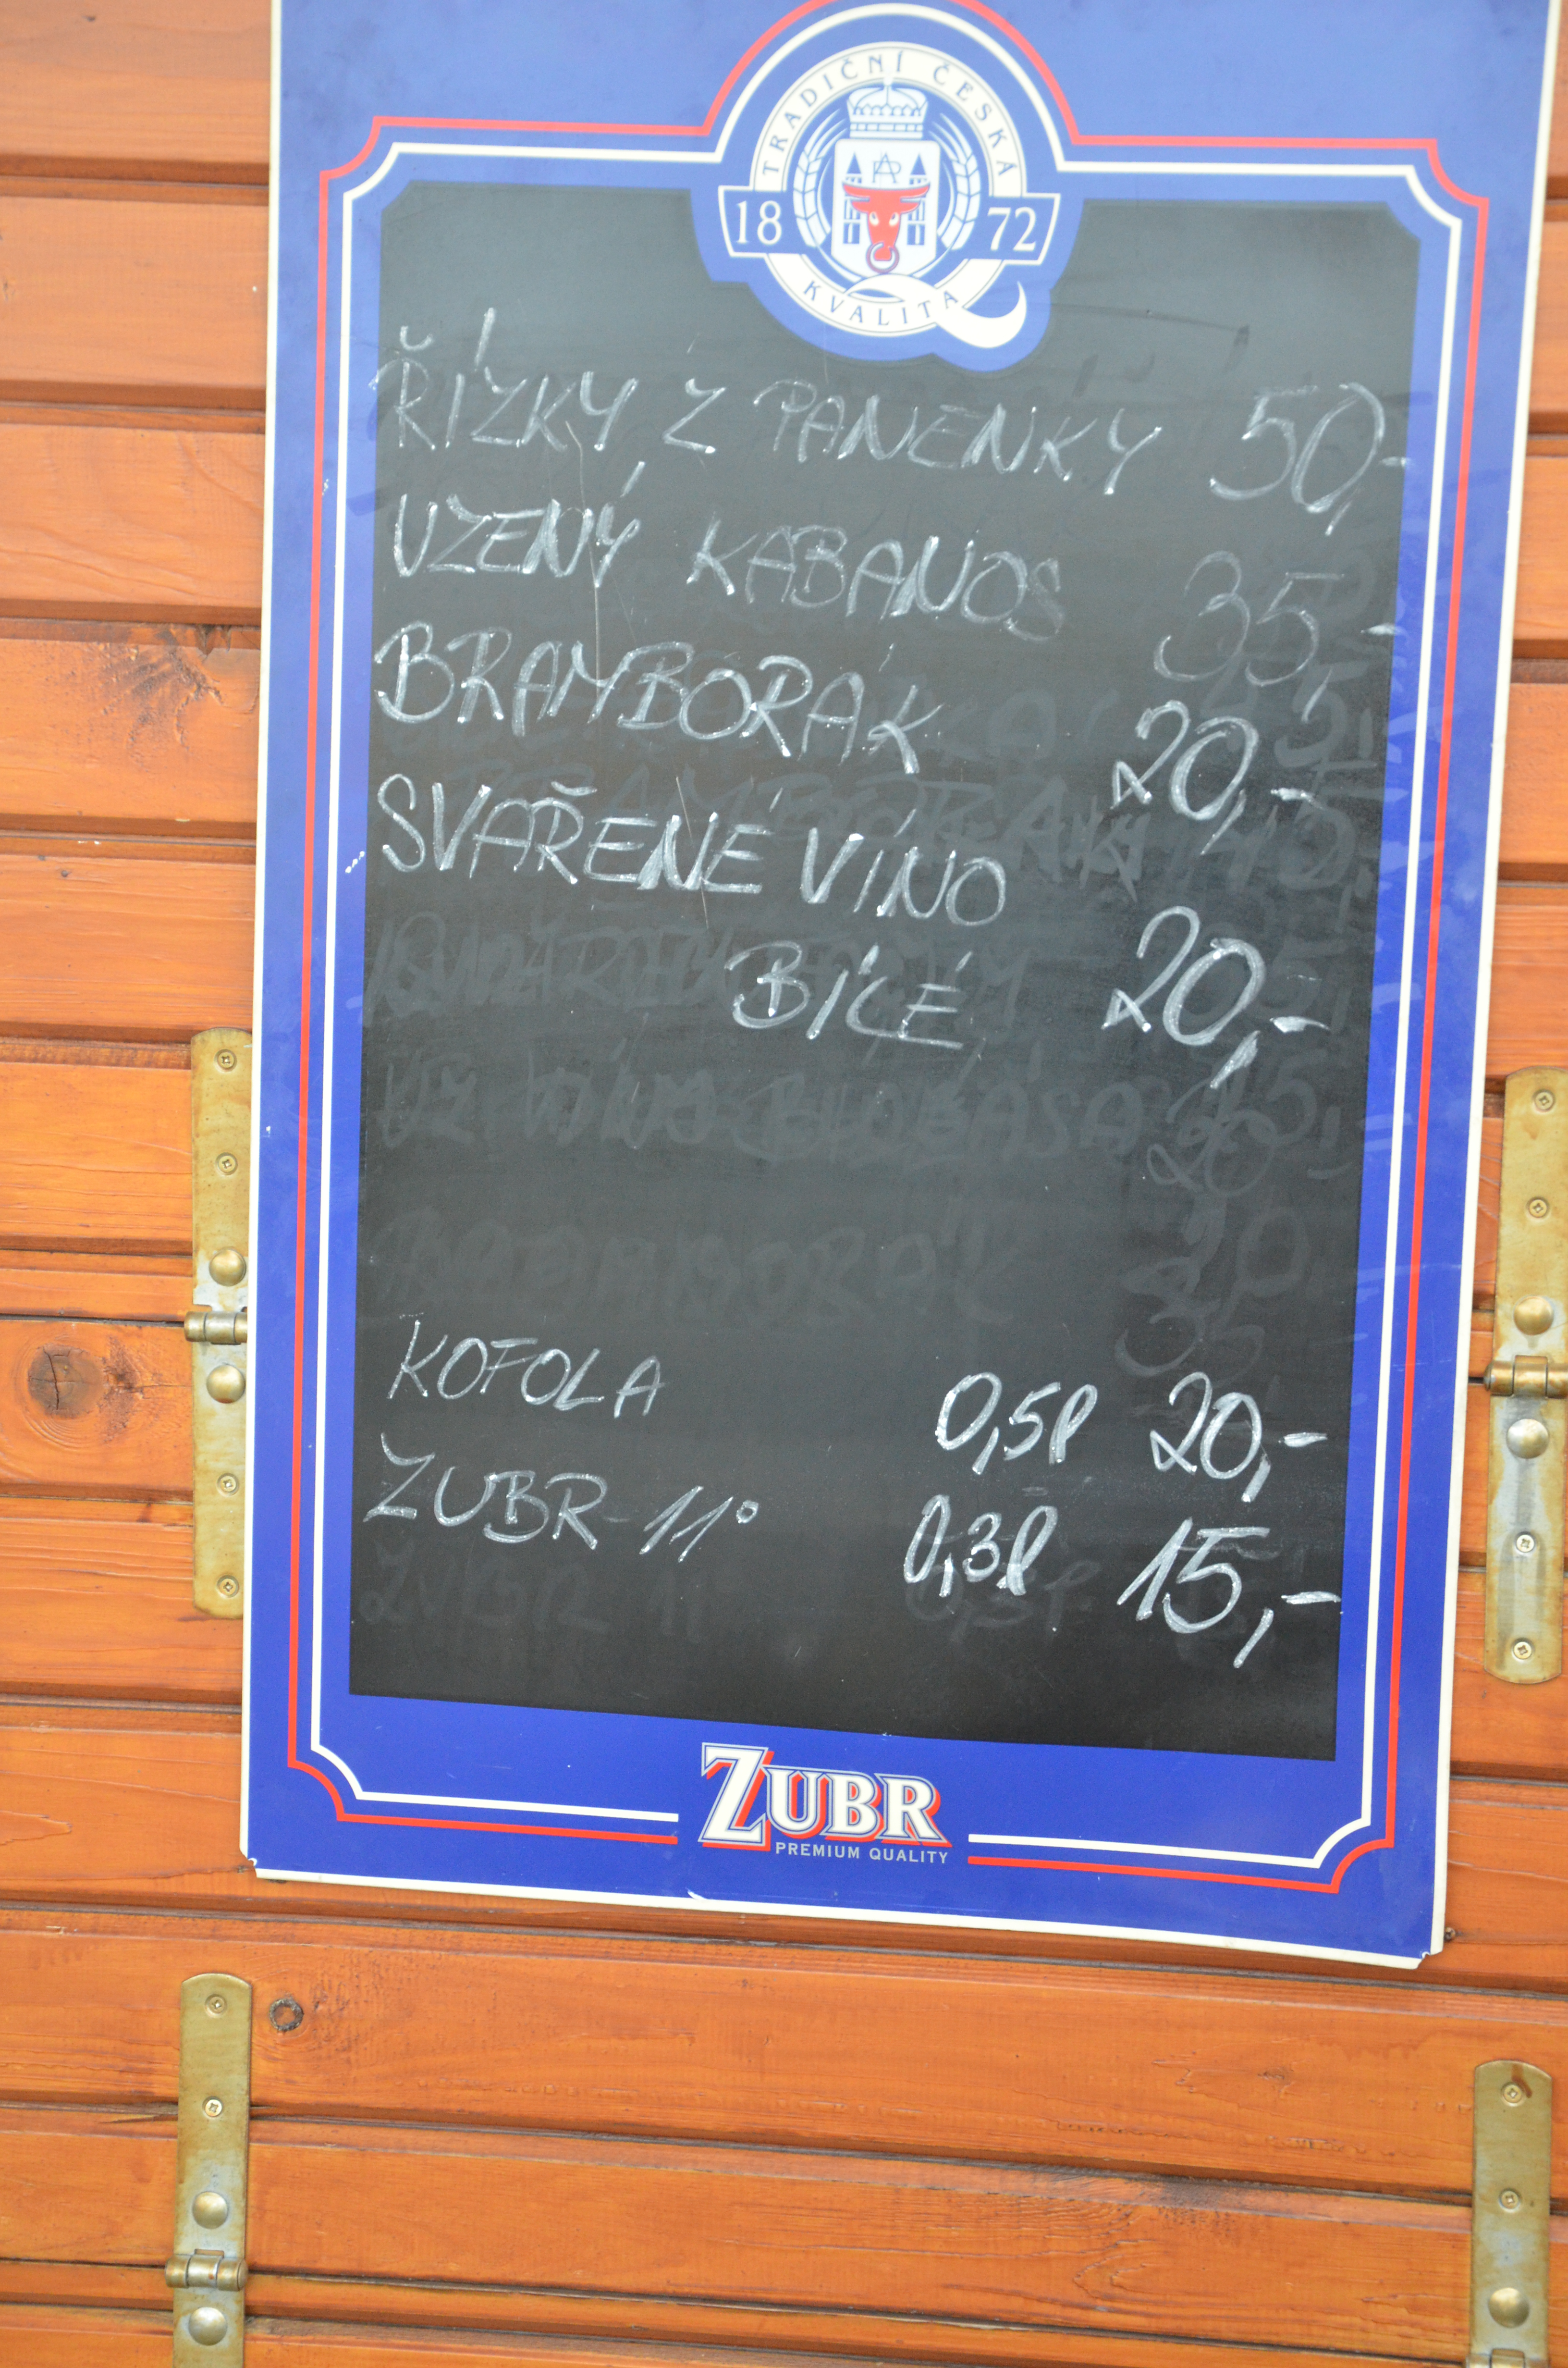 TRADIČNÍ ČESKÁ
18 72
KVALITA
ŘÍZKY Z PANENKY 50,-
UZENÝ KABANOS 35,-
BRAMBORÁK 20,-
SVAŘENÉ VÍNO
BÍLÉ 20,-
KOFOLA 0,5l 20,-
ZUBR 11° 0,3l 15,-
ZUBR
PREMIUM QUALITY